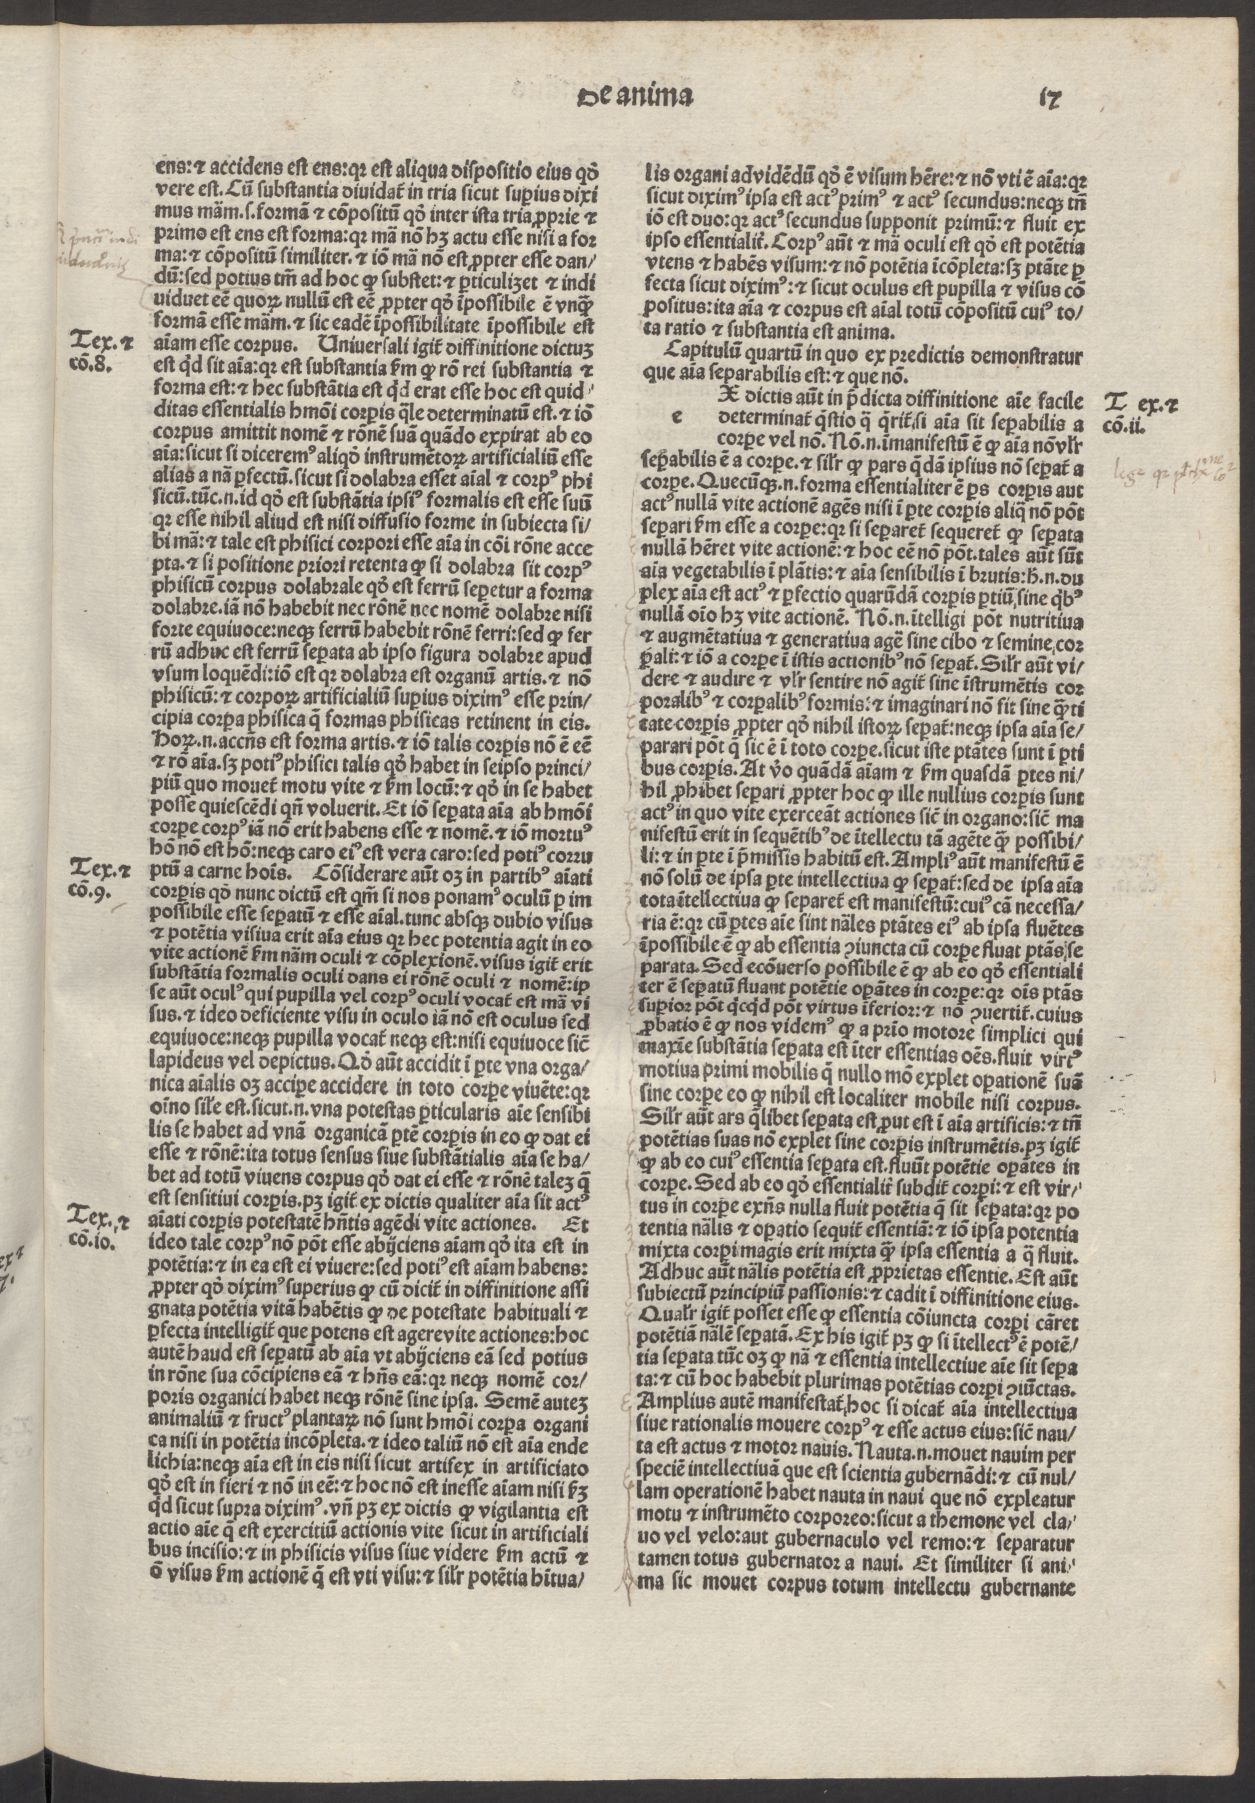 De anima
17
ens:⁊ accidens est ens:qr est aliqua dispositio eius qḋ
vere est. Cū substantia diuidat̃ in tria sicut suꝑius dixi
mus mām.s.formā ⁊ cōpositū qḋ inter ista tria ꝓprie ⁊
primo est ens est forma:qr mā nō hꝫ actu esse nisi a for
ma:⁊ cōpositū similiter.⁊ iō mā nō est ꝓpter esse dan/
dū:sed potius tm̄ ad hoc ꝙ substet:⁊ ꝑticulizet ⁊ indi
uiduet eē̄ quoꝝ nullū est eē ꝓpter qḋ īpossibile ē vnq̄ꝫ
formā esse mām.⁊ sic eadē īpossibilitate īpossibile est
Tex.⁊
cō.8.
aīam esse corpus. Uniuersali igit̃ diffinitione dictuꝫ
est qḋ sit aīa:qr est substantia ẜm ꝙ rō rei substantia ⁊
forma est:⁊ hec substātia est qḋ erat esse hoc est quid/
ditas essentialis hmōi corꝑis q̄le determinatū est.⁊ iō
corpus amittit nomē ⁊ rōnē suā quādo expirat ab eo
aīa:sicut si diceremꝰ aliqḋ instrumētoꝝ artificialiū esse
alias a nā ꝑfectū.sicut si dolabra esset aīal ⁊ corpꝰ phi
sicū.tūc.n.id qḋ est substātia ipsiꝰ formalis est esse suū
qr esse nihil aliud est nisi diffusio forme in subiecta si/
bi mā:⁊ tale est phisici corpori esse aīa in cōi rōne acce
pta.⁊ si positione priori retenta ꝙ si dolabra sit corpꝰ
phisicū corpus dolabrale qḋ est ferrū seꝑetur a forma
dolabre.iā nō habebit nec rōnē nec nomē dolabre nisi
forte equiuoce:neqꝫ ferrū habebit rōnē ferri:sed ꝙ fer
rū adhuc est ferrū seꝑata ab ipso figura dolabre apud
vsum loquēdi:iō est qr dolabra est organū artis.⁊ nō
phisicū:⁊ corpoꝝ artificialiū suꝑius diximꝰ esse prin/
cipia corꝑa phisica q̄ formas phisicas retinent in eis.
Hoꝝ.n.accn̄s est forma artis.⁊ iō talis corꝑis nō ē eē
⁊ rō aīa.sꝫ potiꝰ phisici talis qḋ habet in seipso princi/
piū quo mouet̃ motu vite ⁊ ẜm locū:⁊ qḋ in se habet
posse quiescēdi qn̄ voluerit. Et iō seꝑata aīa ab hmōi
corꝑe corpꝰ iā nō erit habens esse ⁊ nomē.⁊ iō mortuꝰ
hō nō est hō:neqꝫ caro eiꝰ est vera caro:sed potiꝰ corru
Tex.⁊
cō.9.
ptū a carne hoīs. Cōsiderare aūt oꝫ in partibꝰ aīati
corꝑis qḋ nunc dictū est qm̄ si nos ponamꝰ oculū ꝑ im
possibile esse seꝑatū ⁊ esse aīal.tunc absqꝫ dubio visus
⁊ potētia visiua erit aīa eius qr hec potentia agit in eo
vite actionē ẜm nām oculi ⁊ cōplexionē.visus igit̃ erit
substātia formalis oculi dans ei rōnē oculi ⁊ nomē:ip
se aūt oculꝰ qui pupilla vel corpꝰ oculi vocat̃ est mā vi
sus.⁊ ideo deficiente visu in oculo iā nō est oculus sed
equiuoce:neqꝫ pupilla vocat̃ neqꝫ est:nisi equiuoce sic̄
lapideus vel depictus. Qḋ aūt accidit ī ꝑte vna orga/
nica aīalis oꝫ acciꝑe accidere in toto corꝑe viuēte:qr
oīno sil̄e est.sicut.n.vna potestas ꝑticularis aīe sensibi
lis se habet ad vnā organicā ꝑtē corꝑis in eo ꝙ dat ei
esse ⁊ rōnē:ita totus sensus siue substātialis aīa se ha/
bet ad totū viuens corpus qḋ dat ei esse ⁊ rōnē taleꝫ q̄
est sensitiui corꝑis.pꝫ igit̃ ex dictis qualiter aīa sit actꝰ
Tex.⁊
cō.10.
aīati corꝑis potestatē hn̄tis agēdi vite actiones. Et
ideo tale corpꝰ nō pōt esse abijciens aīam qḋ ita est in
potētia:⁊ in ea est ei viuere:sed potiꝰ est aīam habens:
ꝓpter qḋ diximꝰ superius ꝙ cū dicit̃ in diffinitione assi
gnata potētia vitā habētis ꝙ de potestate habituali ⁊
ꝑfecta intelligit̃ que potens est agere vite actiones:hoc
autē haud est seꝑatū ab aīa vt abijciens eā sed potius
in rōne sua cōcipiens eā ⁊ hn̄s eā:qr neqꝫ nomē cor/
poris organici habet neqꝫ rōnē sine ipsa. Semē auteꝫ
animaliū ⁊ fructꝰ plantaꝝ nō sunt hmōi corꝑa organi
ca nisi in potētia incōpleta.⁊ ideo taliū nō est aīa ende
lichia:neqꝫ aīa est in eis nisi sicut artifex in artificiato
qḋ est in fieri ⁊ nō in eē:⁊ hoc nō est inesse aīam nisi ẜꝫ
qḋ sicut supra diximꝰ.vn̄ pꝫ ex dictis ꝙ vigilantia est
actio aīe q̄ est exercitiū actionis vite sicut in artificiali
bus incisio:⁊ in phisicis visus siue videre ẜm actū ⁊
ō visus ẜm actionē q̄ est vti visu:⁊ sil̄r potētia hītua/
lis organi ad vidēdū qḋ ē visum hēre:⁊ nō vti ē aīa:qr
sicut diximꝰ ipsa est actꝰ primꝰ ⁊ actꝰ secundus:neqꝫ tn̄
iō est duo:qr actꝰ secundus supponit primū:⁊ fluit ex
ipso essentialit̃. Corpꝰ aūt ⁊ mā oculi est qḋ est potētia
vtens ⁊ habēs visum:⁊ nō potētia īcōpleta:sꝫ ptāte ꝑ
fecta sicut diximꝰ:⁊ sicut oculus est pupilla ⁊ visus cō
positus:ita aīa ⁊ corpus est aīal totū cōpositū cuiꝰ to/
ta ratio ⁊ substantia est anima.
Capitulū quartū in quo ex predictis demonstratur
que aīa separabilis est:⁊ que nō.
Tex.⁊
cō.11.
e
X dictis aūt in p̄dicta diffinitione aīe facile
determinat̃ q̄stio q̄ q̄rit̃,si aīa sit seꝑabilis a
corꝑe vel nō. Nō.n.īmanifestū ē ꝙ aīa nō vl̄r
seꝑabilis ē a corꝑe.⁊ sil̄r ꝙ pars q̄dā ipsius nō seꝑat̃ a
corꝑe. Quecūqꝫ.n.forma essentialiter ē ꝑs corꝑis aut
actꝰ nullā vite actionē agēs nisi ī ꝑte corꝑis aliq̄ nō pōt
seꝑari ẜm esse a corꝑe:qr si separet̃ sequeret̃ ꝙ seꝑata
nullā hēret vite actionē:⁊ hoc eē nō pōt.tales aūt sūt
aīa vegetabilis ī plātis:⁊ aīa sensibilis ī brutis:h.n.du
plex aīa est actꝰ ⁊ ꝑfectio quarūdā corꝑis ꝑtiū,sine qḃꝰ
nullā oīo hꝫ vite actionē. Nō.n.ītelligi pōt nutritiua
⁊ augmētatiua ⁊ generatiua agē sine cibo ⁊ semine cor
ꝑali:⁊ iō a corꝑe ī istis actionibꝰ nō seꝑat̃. Sil̄r aūt vi/
dere ⁊ audire ⁊ vl̄r sentire nō agit̃ sine īstrumētis cor
poralibꝰ ⁊ corꝑalibꝰ formis:⁊ imaginari nō fit sine q̄ꝫti
tate corꝑis ꝓpter qḋ nihil istoꝝ seꝑat̃:neqꝫ ipsa aīa se/
parari pōt q̄ sic ē ī toto corꝑe.sicut iste ptātes sunt ī ꝑti
bus corꝑis. At v̄o quādā aīam ⁊ ẜm quasdā ꝑtes ni/
hil ꝓhibet seꝑari ꝓpter hoc ꝙ ille nullius corꝑis sunt
actꝰ in quo vite exerceāt actiones sic̄ in organo:sic̄ ma
nifestū erit in sequētibꝰ de ītellectu tā agēte q̄ꝫ possibi/
li:⁊ in ꝑte ī p̄missis habitū est. Ampliꝰ aūt manifestū ē
nō solū de ipsa ꝑte intellectiua ꝙ seꝑat̃:sed de ipsa aīa
tota ītellectiua ꝙ separet̃ est manifestū:cuiꝰ cā necessa/
ria ē:qr cū ꝑtes aīe sint nāles ptātes eiꝰ ab ipsa fluētes
īpossibile ē ꝙ ab essentia ꝯiuncta cū corꝑe fluat ptās,se
parata. Sed ecōuerso possibile ē ꝙ ab eo qḋ essentiali
ter ē seꝑatū fluant potētie oꝑātes in corꝑe:qr oīs ptās
suꝑior pōt qḋcqḋ pōt virtus īferior:⁊ nō ꝯuertit̃.cuius
ꝓbatio ē ꝙ nos videmꝰ ꝙ a prīo motore simplici qui
maxīe substātia seꝑata est īter essentias oēs.fluit virtꝰ
motiua primi mobilis q̄ nullo mō explet oꝑationē suā
sine corꝑe eo ꝙ nihil est localiter mobile nisi corpus.
Sil̄r aūt ars q̄libet seꝑata est,ꝓut est ī aīa artificis:⁊ tn̄
potētias suas nō explet sine corꝑis instrumētis.pꝫ igit̃
ꝙ ab eo cuiꝰ essentia seꝑata est.fluūt potētie oꝑātes in
corꝑe. Sed ab eo qḋ essentialit̃ subdit̃ corpi:⁊ est vir/
tus in corpe exn̄s nulla fluit potētia q̄ sit seꝑata:qr po
tentia nālis ⁊ oꝑatio sequit̃ essentiā:⁊ iō ipsa potentia
mixta corpi magis erit mixta q̄ꝫ ipsa essentia a q̄ fluit.
Adhuc aūt nālis potētia est ꝓprietas essentie. Est aūt
subiectū principiū passionis:⁊ cadit ī diffinitione eius.
Qual̄r igit̃ posset esse ꝙ essentia cōiuncta corpi cāret
potētiā nālē seꝑatā. Ex his igit̃ pꝫ ꝙ si ītellectꝰ ē potē/
tia seꝑata tūc oꝫ ꝙ nā ⁊ essentia intellectiue aīe sit seꝑa
ta:⁊ cū hoc habebit plurimas potētias corpi ꝯiūctas.
Amplius autē manifestat̃,hoc si dicat̃ aīa intellectiua
siue rationalis mouere corpꝰ ⁊ esse actus eius:sic̄ nau/
ta est actus ⁊ motor nauis. Nauta.n.mouet nauim per
speciē intellectiuā que est scientia gubernādi:⁊ cū nul/
lam operationē habet nauta in naui que nō expleatur
motu ⁊ instrumēto corporeo:sicut a themone vel cla/
uo vel velo:aut gubernaculo vel remo:⁊ separatur
tamen totus gubernator a naui. Et similiter si ani/
ma sic mouet corpus totum intellectu gubernante